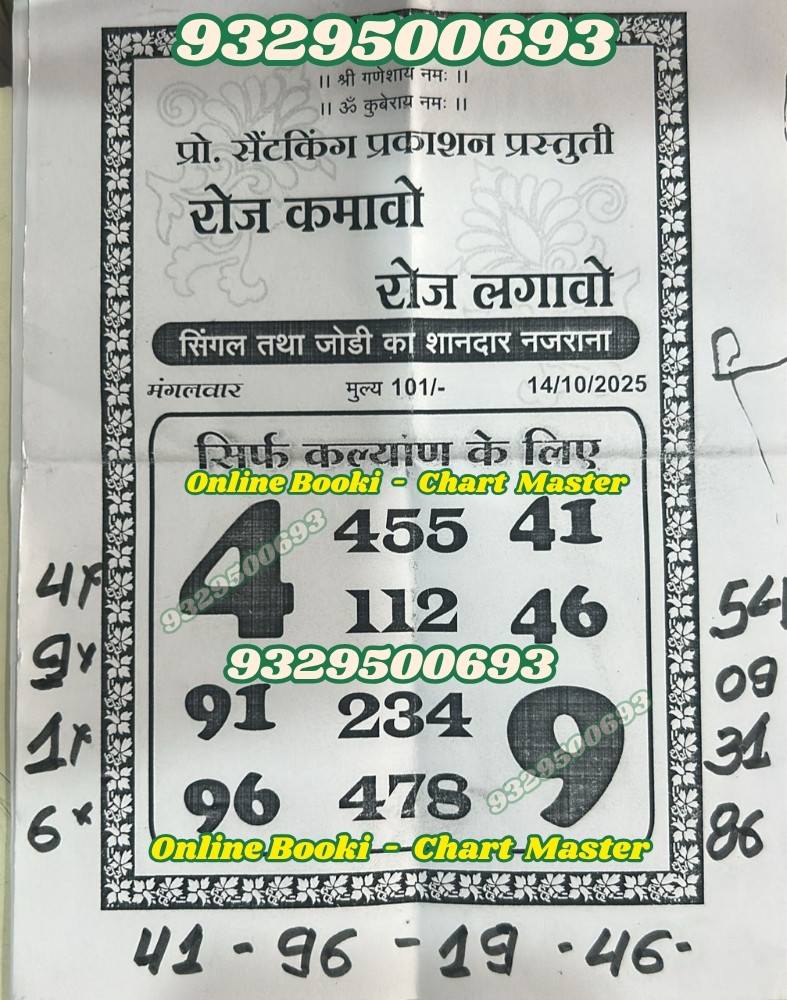 9329500693
।। श्री गणेशाय नमः ।।
।। ॐ कुबेराय नमः ।।
प्रो. सैंटकिंग प्रकाशन प्रस्तुती
रोज कमावो
रोज लगावो
सिंगल तथा जोडी का शानदार नजराना
मंगलवार मुल्य 101/- 14/10/2025
सिर्फ कल्याण के लिए
Online Booki - Chart Master
4 455 41
9329500693
112 46
9329500693
91 234 9
9329500693
96 478
Online Booki - Chart Master
4x
9x
1x
6x
54
09
31
86
41 - 96 - 19 - 46 -